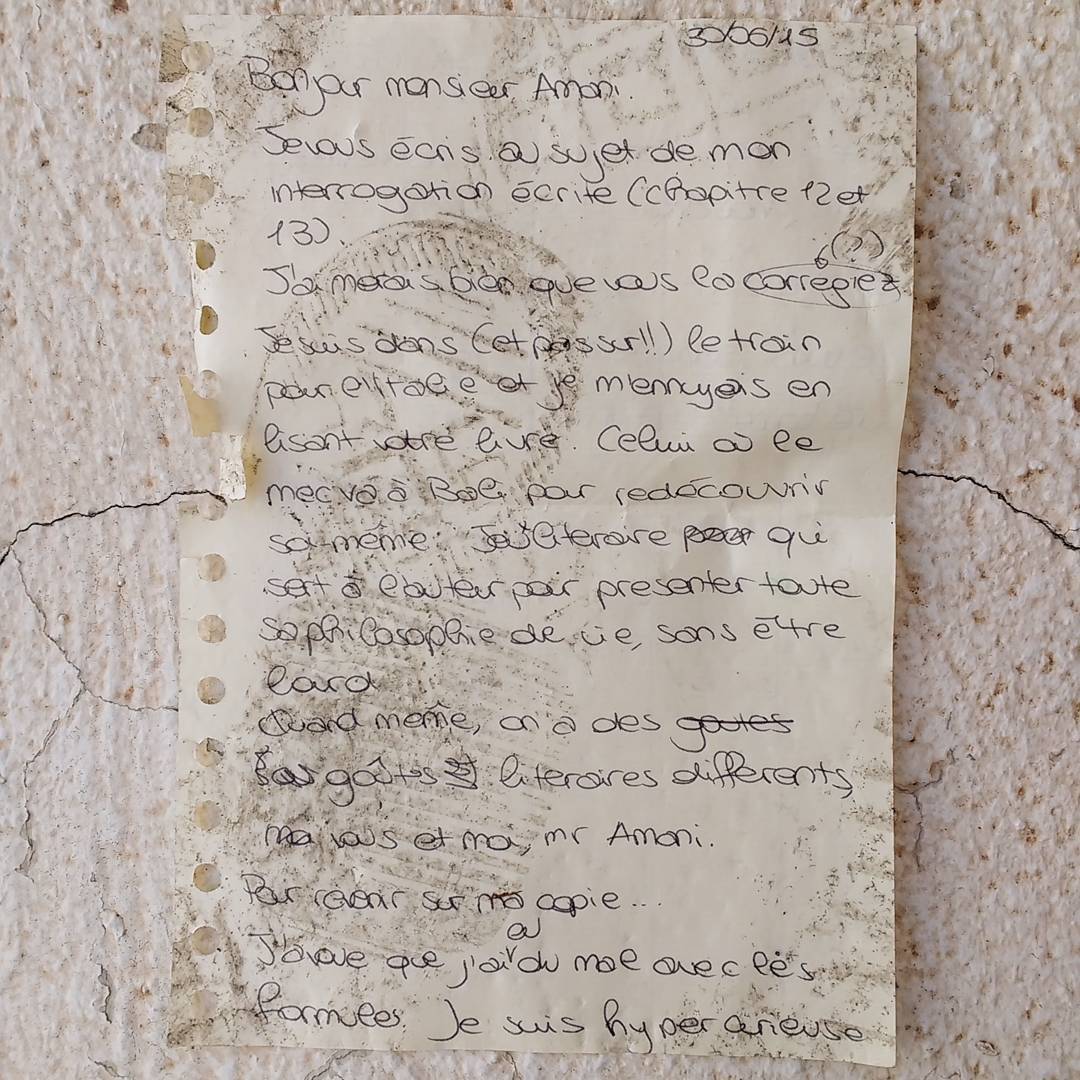 30/06/15
Bonjour monsieur Amoni.
Je vous écris au sujet de mon
interrogation écrite (chapitre 12 et
13).
(?)
J'aimerais bien que vous la corregiez
Je suis dans (et pas sur!!) le train
pour l'Italie et je m'ennuyais en
lisant votre livre. Celui où le
mec va à Bali pour redécouvrir
soi-même. literaire qui
sert à l'auteur pour presenter toute
sa philosophie de vie, sans être
lourd
Quand même, on a des goutes
goûts literaires différents,
vous et moi, mr Amoni.
Pour revenir sur ma copie...
eu
J'avoue que j'ai du mal avec les
formules. Je suis hyper curieuse